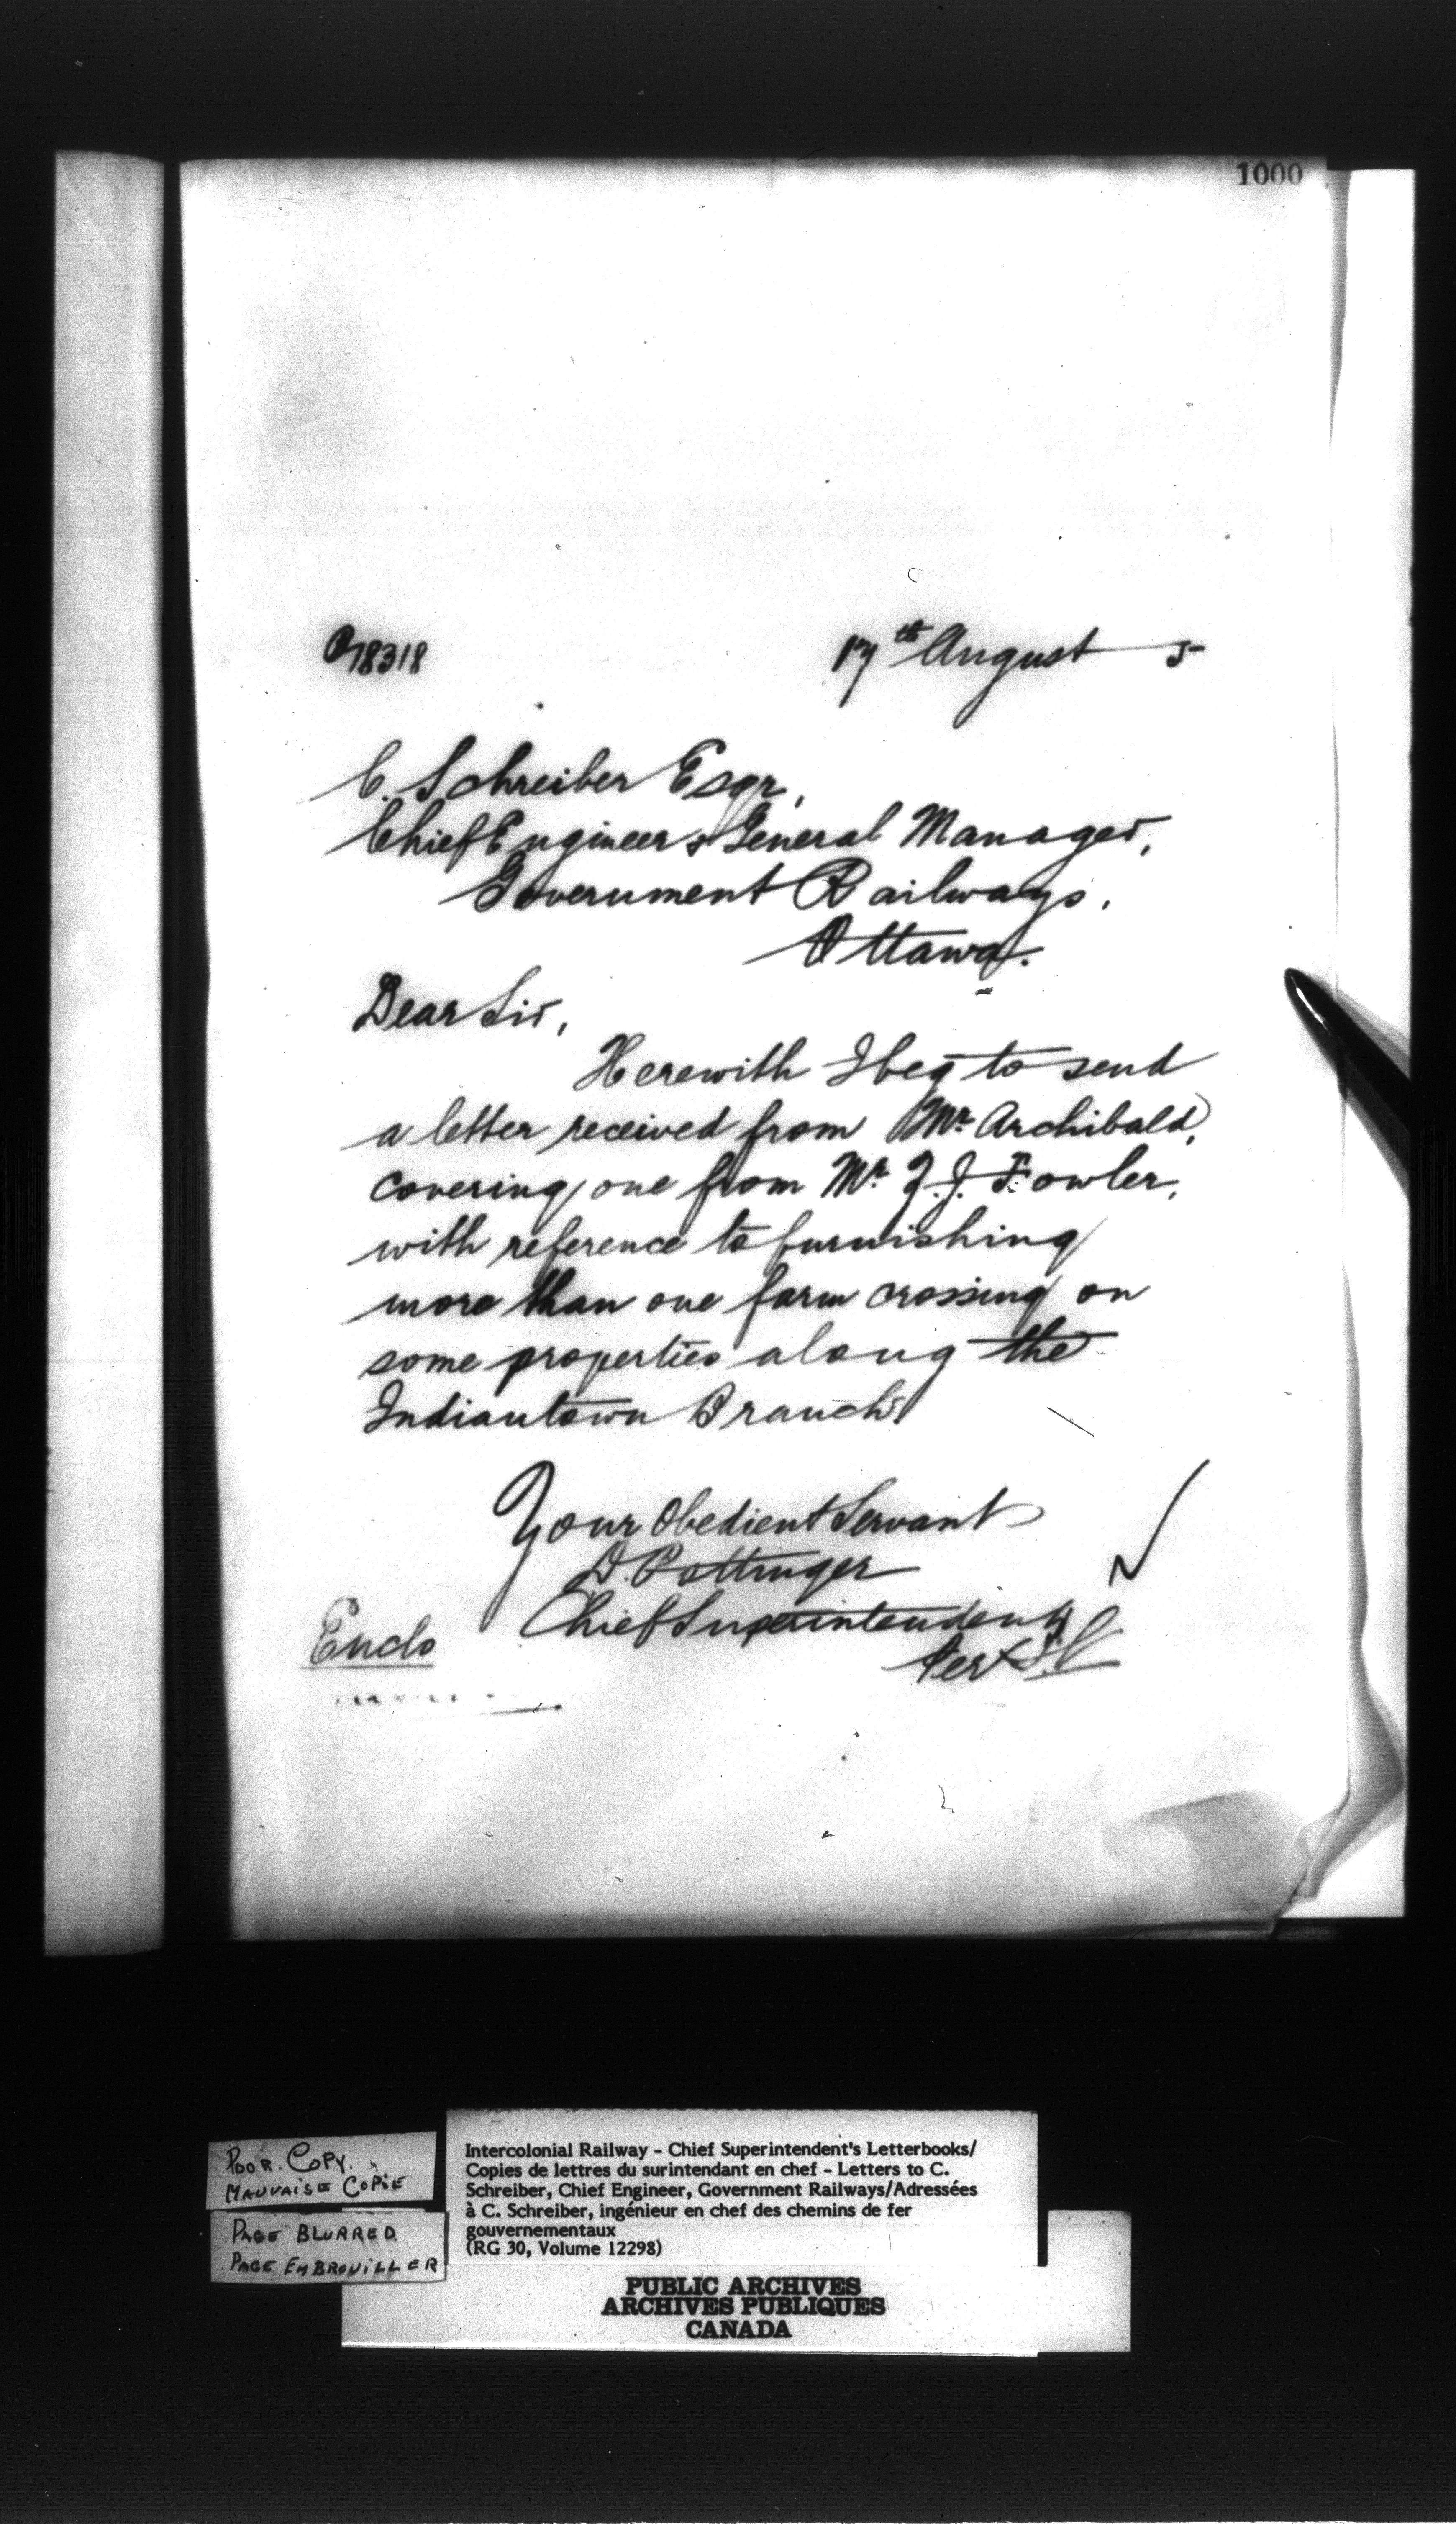 1000
18318
17th August 5
C. Schreiber Esqr,
Chief Engineer & General Manager,
Government Railways,
Ottawa.
Dear Sir,
Herewith I beg to send
a letter received from Mr. Archibald,
covering one from Mr. J. Fowler,
with reference to furnishing
more than one farm crossing on
some properties along the
Indiantown Branch
Your Obedient Servant
D. Pottinger
Chief Superintendent
Per
Enclo
POOR. COPY.
MAUVAISE COPIE
PAGE BLURRED.
PAGE EMBROUILLER
Intercolonial Railway – Chief Superintendent's Letterbooks/
Copies de lettres du surintendant en chef – Letters to C.
Schreiber, Chief Engineer, Government Railways/Adressées
à C. Schreiber, ingénieur en chef des chemins de fer
gouvernementaux
(RG 30, Volume 12298)
PUBLIC ARCHIVES
ARCHIVES PUBLIQUES
CANADA